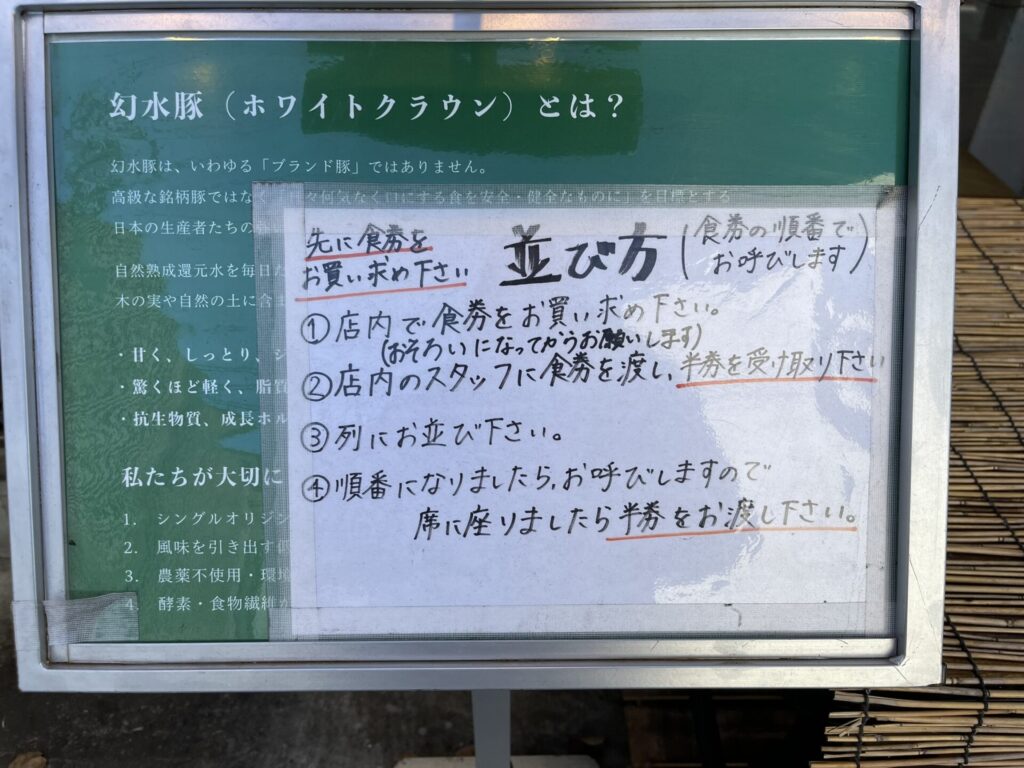 幻水豚（ホワイトクラウン）とは？
幻水豚は、いわゆる「ブランド豚」ではありません。
高級な銘柄豚ではなく 何気なく口にする食を安全・健全なものに」を目標とする
日本の生産者たちの
自然熟成還元水を毎日
木の実や自然の土に含ま
・甘く、しっとり、
・驚くほど軽く、脂質
・抗生物質、成長ホル
私たちが大切に
1. シングルオリジン
2. 風味を引き出す
3. 農薬不使用・環境
4. 酵素・食物繊維が
先に食券を
お買い求め下さい
並び方
(食券の順番で
お呼びします)
①店内で食券をお買い求め下さい。
(おそろいになってからお願いします)
②店内のスタッフに食券を渡し、半券を受け取り下さい
③列にお並び下さい。
④順番になりましたら、お呼びしますので
席に座りましたら半券をお渡し下さい。